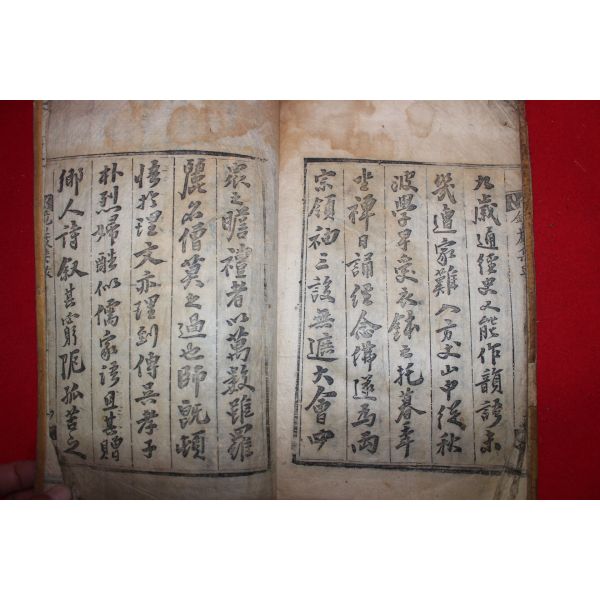 九歲通經史又能作韻語未
幾遭家難入方丈山中從秋
波學早受衣鉢公托暮年
坐禪日誦經念佛遂爲兩
宗領袖三設無遮大會四
衆之瞻禮者以萬數雖羅
麗名僧莫之過也師旣頓
悟於理文亦理到傳吳孝子
朴烈婦酷似儒家語且其贈
鄉人詩叙甚窮阨孤苦之